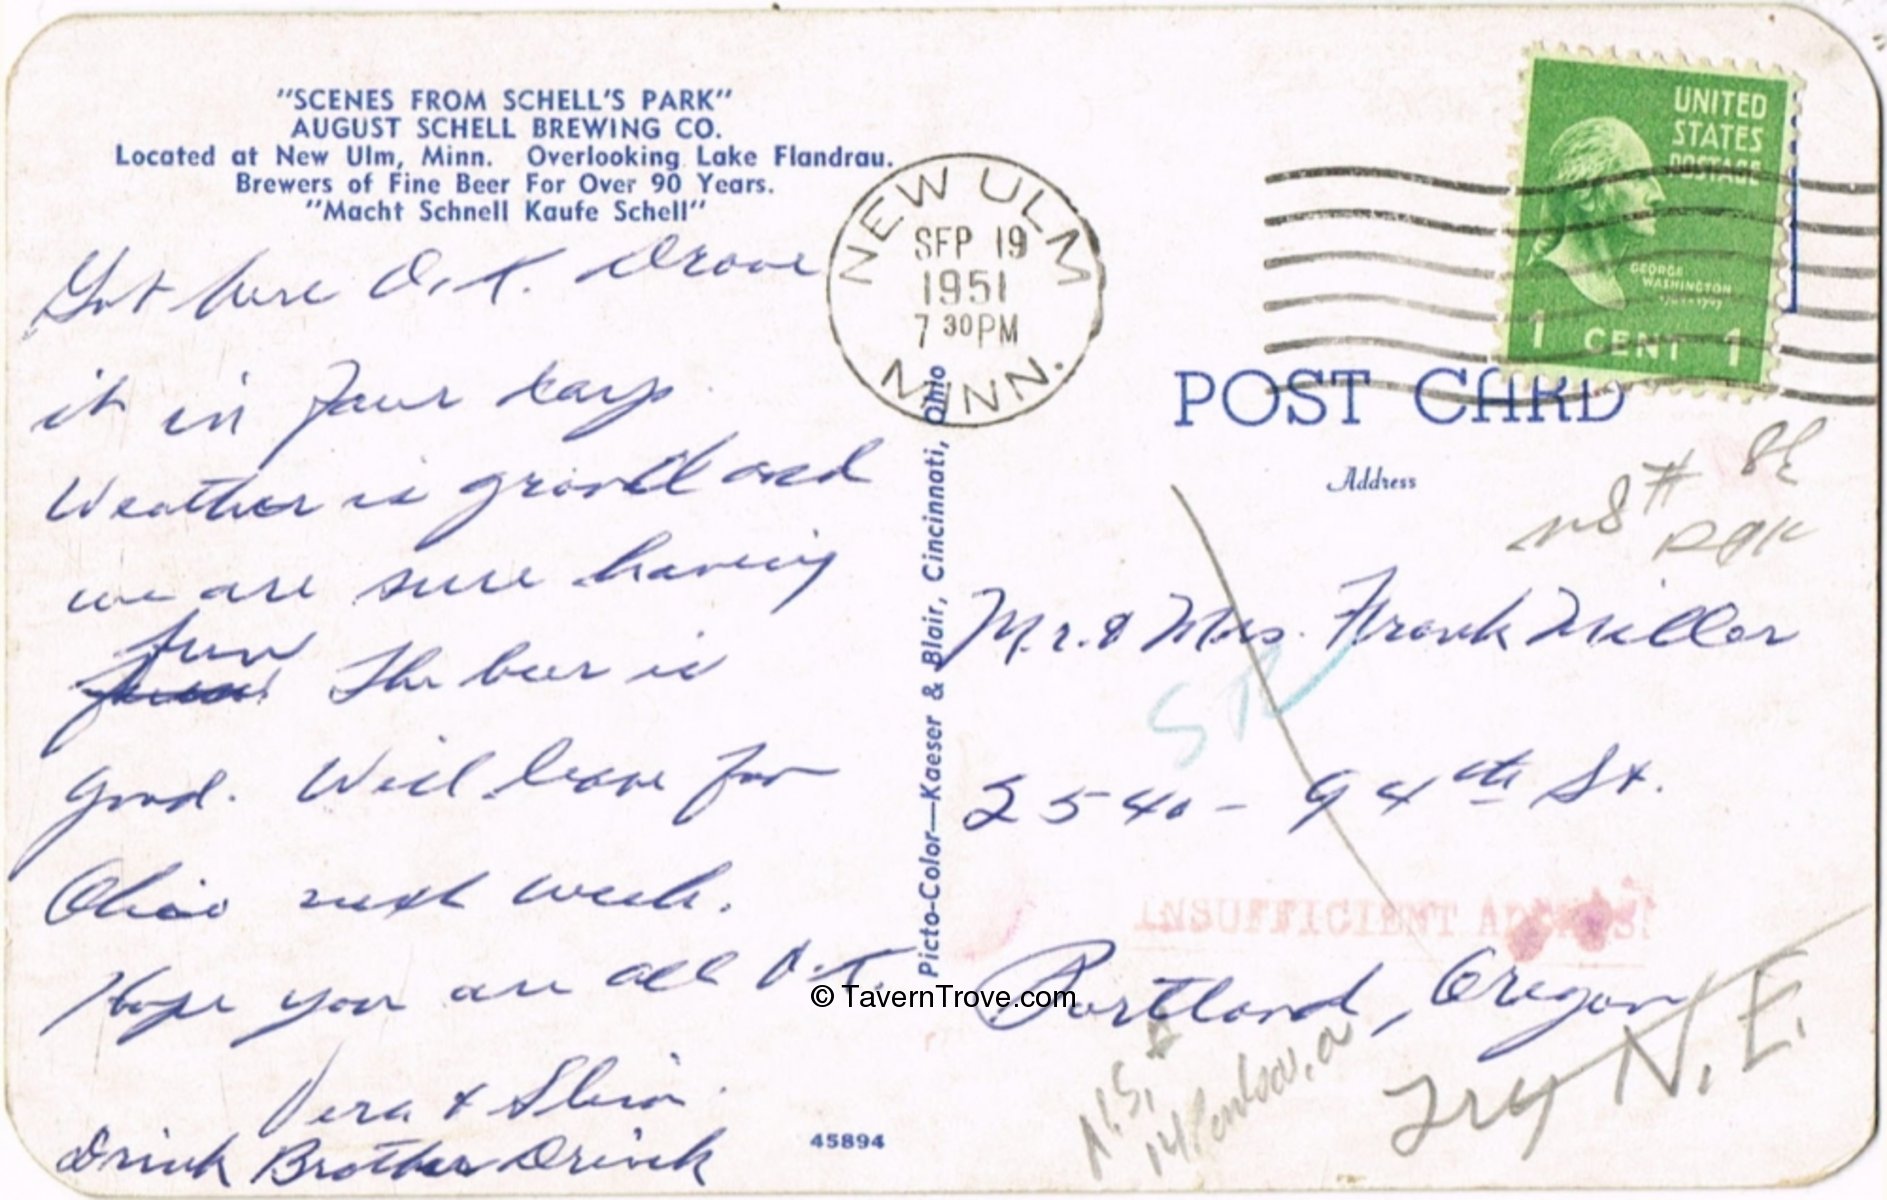 "SCENES FROM SCHELL'S PARK"
AUGUST SCHELL BREWING CO.
Located at New Ulm, Minn. Overlooking Lake Flandrau.
Brewers of Fine Beer For Over 90 Years.
"Macht Schnell Kaufe Schell"
Got here O.K. Drove
it in four days.
Weather is grand and
we are sure having
fun The beer is
good. Will leave for
Ohio next week.
Hope you are all O.K.
Vera &
Drink Brother Drink
45894
Picto-Color—Kaeser & Blair, Cincinnati, Ohio
NEW ULM
SEP 19
1951
7 30 PM
MINN.
UNITED
STATES
POSTAGE
GEORGE
WASHINGTON
1 CENT 1
POST CARD
Address
Mr. & Mrs. Frank Miller
2540 - 94th St.
INSUFFICIENT ADDRESS
Portland, Oregon
Try N.E.
© TavernTrove.com